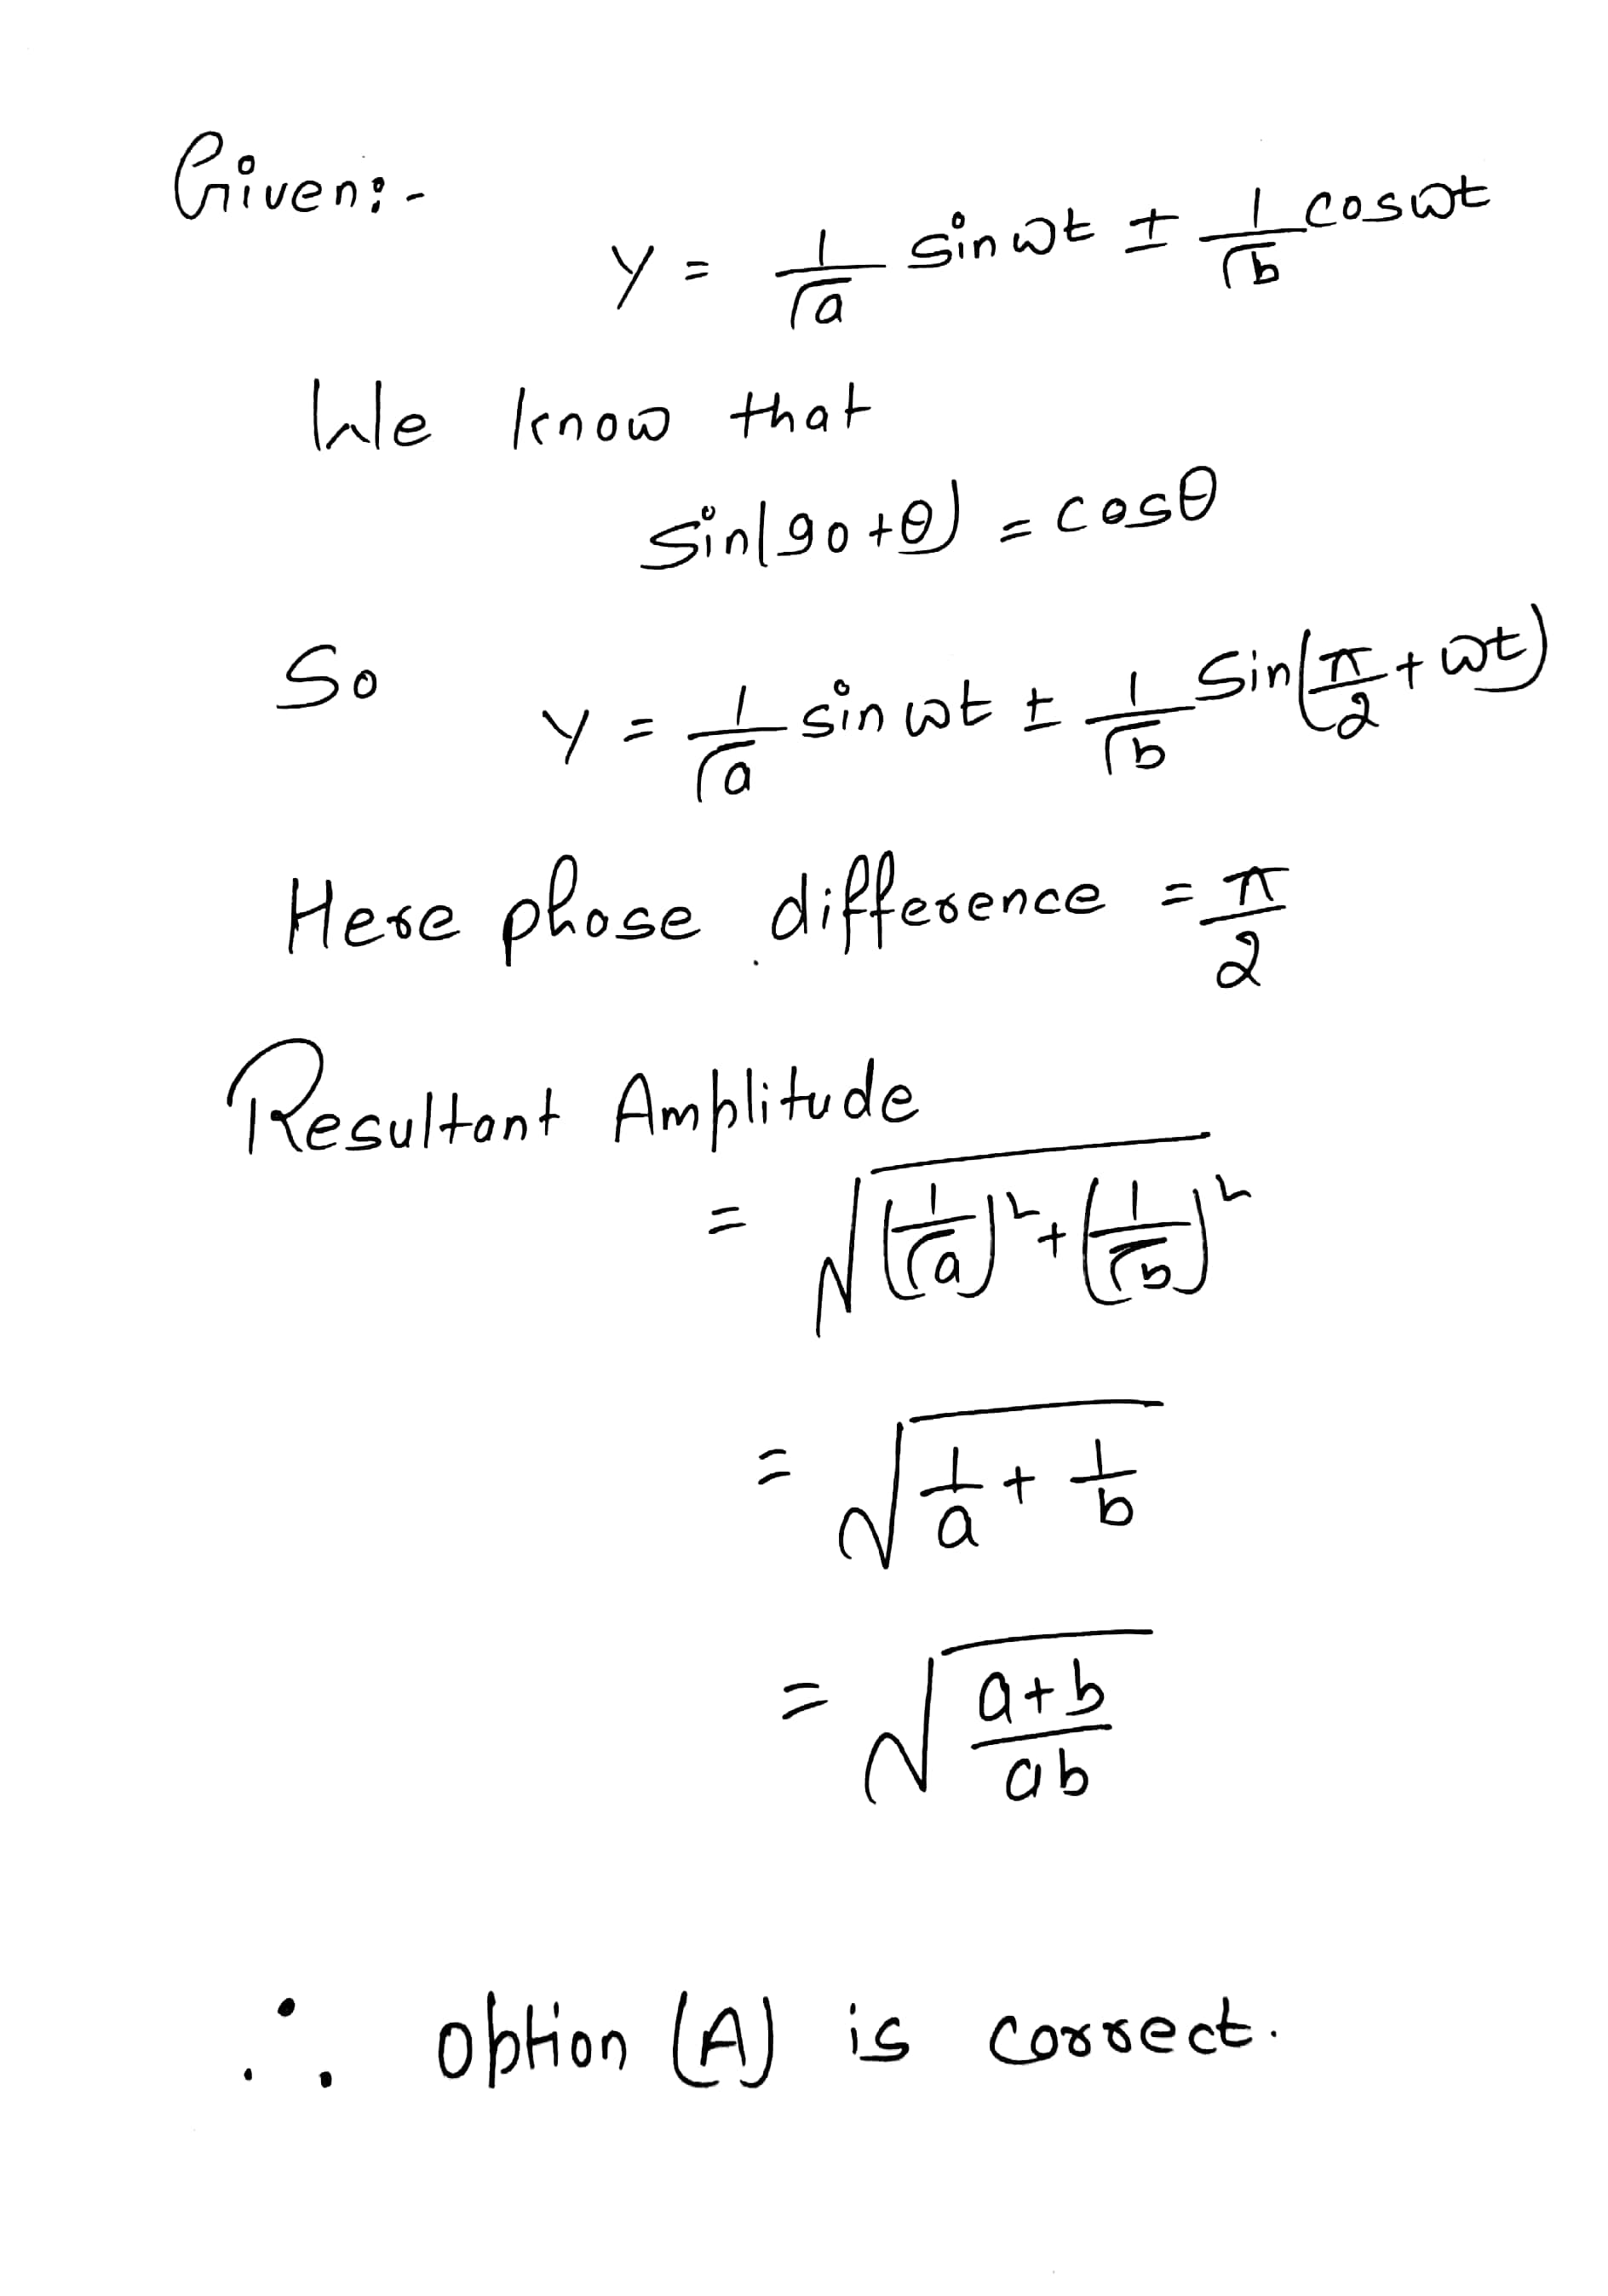 Given:-
y = 1/√a sin ωt ± 1/√b cos ωt
We know that
sin(90+θ) = cosθ
So y = 1/√a sin ωt ± 1/√b sin(π/2 + ωt)
Here phase difference = π/2
Resultant Amplitude
= √((1/√a)² + (1/√b)²)
= √(1/a + 1/b)
= √((a+b)/ab)
∴ option (A) is correct.